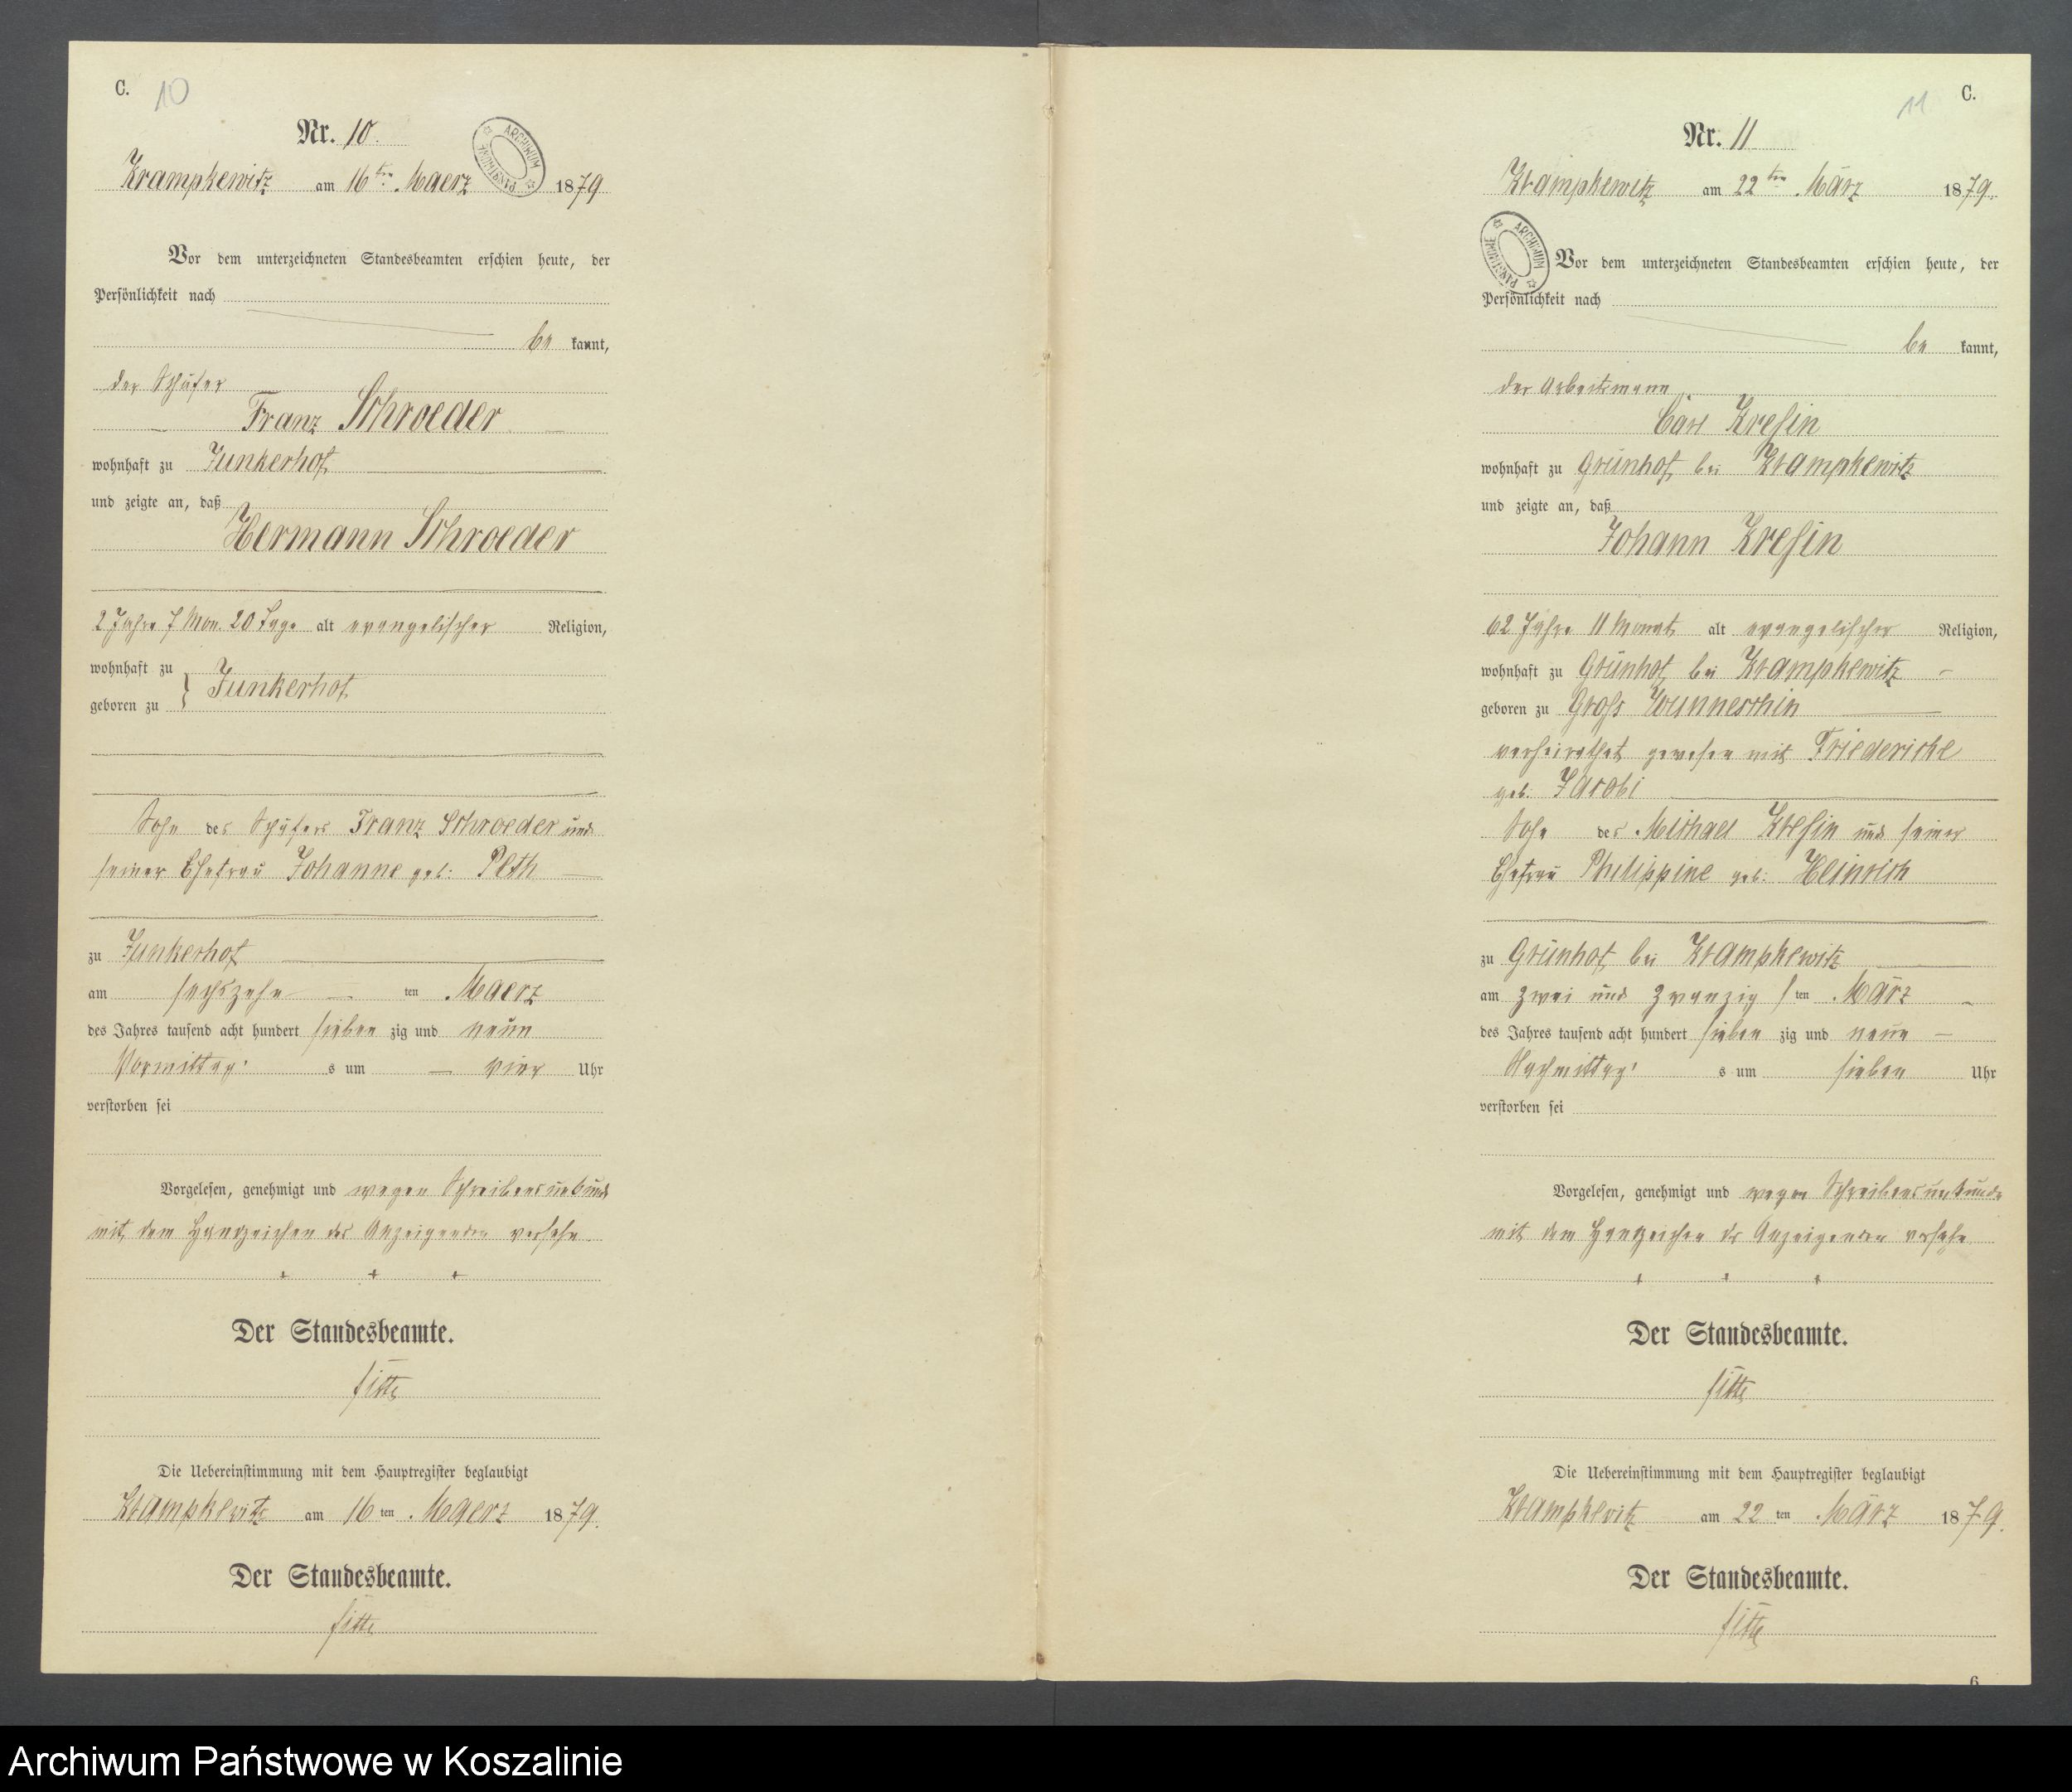 C.
10
Nr. 10.
ARCHIWUM PAŃSTWOWE
Krampkewitz am 16ten Maerz 1879
Vor dem unterzeichneten Standesbeamten erschien heute, der
Persönlichkeit nach
be kannt,
der Schäfer
Franz Schroeder
wohnhaft zu Junkerhof
und zeigte an, daß
Hermann Schroeder
2 Jahre 7 Mon. 20 Tage alt evangelischer Religion,
wohnhaft zu
geboren zu } Junkerhof
Sohn des Schäfers Franz Schroeder und
seiner Ehefrau Johanne geb: Peth
zu Junkerhof
am sechszehn ten Maerz
des Jahres tausend acht hundert sieben zig und neun
Vormittag s um vier Uhr
verstorben sei
Vorgelesen, genehmigt und wegen Schreibensunkunde
mit dem Handzeichen des Anzeigenden versehn
+ + +
Der Standesbeamte.
Die Uebereinstimmung mit dem Hauptregister beglaubigt
Krampkewitz am 16 ten Maerz 1879.
Der Standesbeamte.
C.
11
Nr. 11
Krampkewitz am 22ten März 1879.
ARCHIWUM PAŃSTWOWE
Vor dem unterzeichneten Standesbeamten erschien heute, der
Persönlichkeit nach
be kannt,
der Arbeitsmann
Carl Kresin
wohnhaft zu Grünhof bei Krampkewitz
und zeigte an, daß
Johann Kresin
62 Jahre 11 Monat alt evangelischer Religion,
wohnhaft zu Grünhof bei Krampkewitz
geboren zu Gross Wunneschin
verheirathet gewesen mit Friedericke
geb. Jacobi
Sohn des Michael Kresin und seiner
Ehefrau Philippine geb: Heinrich
zu Grünhof bei Krampkewitz
am zwei und zwanzig s ten März
des Jahres tausend acht hundert sieben zig und neun
Nachmittag s um sieben Uhr
verstorben sei
Vorgelesen, genehmigt und wegen Schreibensunkunde
mit dem Handzeichen des Anzeigenden versehn
+ + +
Der Standesbeamte.
Die Uebereinstimmung mit dem Hauptregister beglaubigt
Krampkewitz am 22 ten März 1879.
Der Standesbeamte.
6
Archiwum Państwowe w Koszalinie